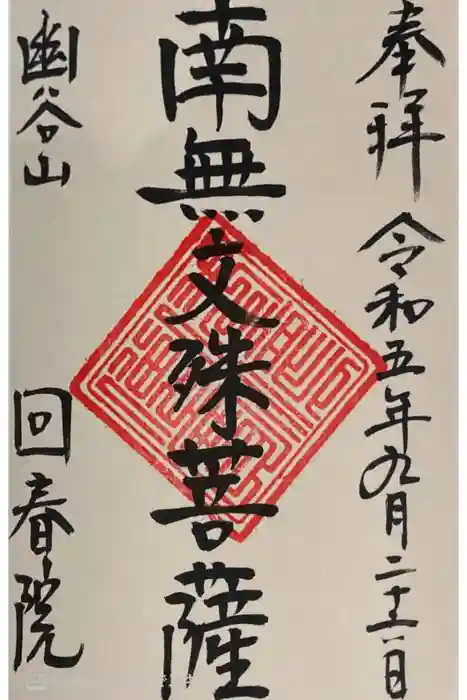 奉拝 令和五年九月二十一日
南無文殊菩薩
幽谷山 回春院